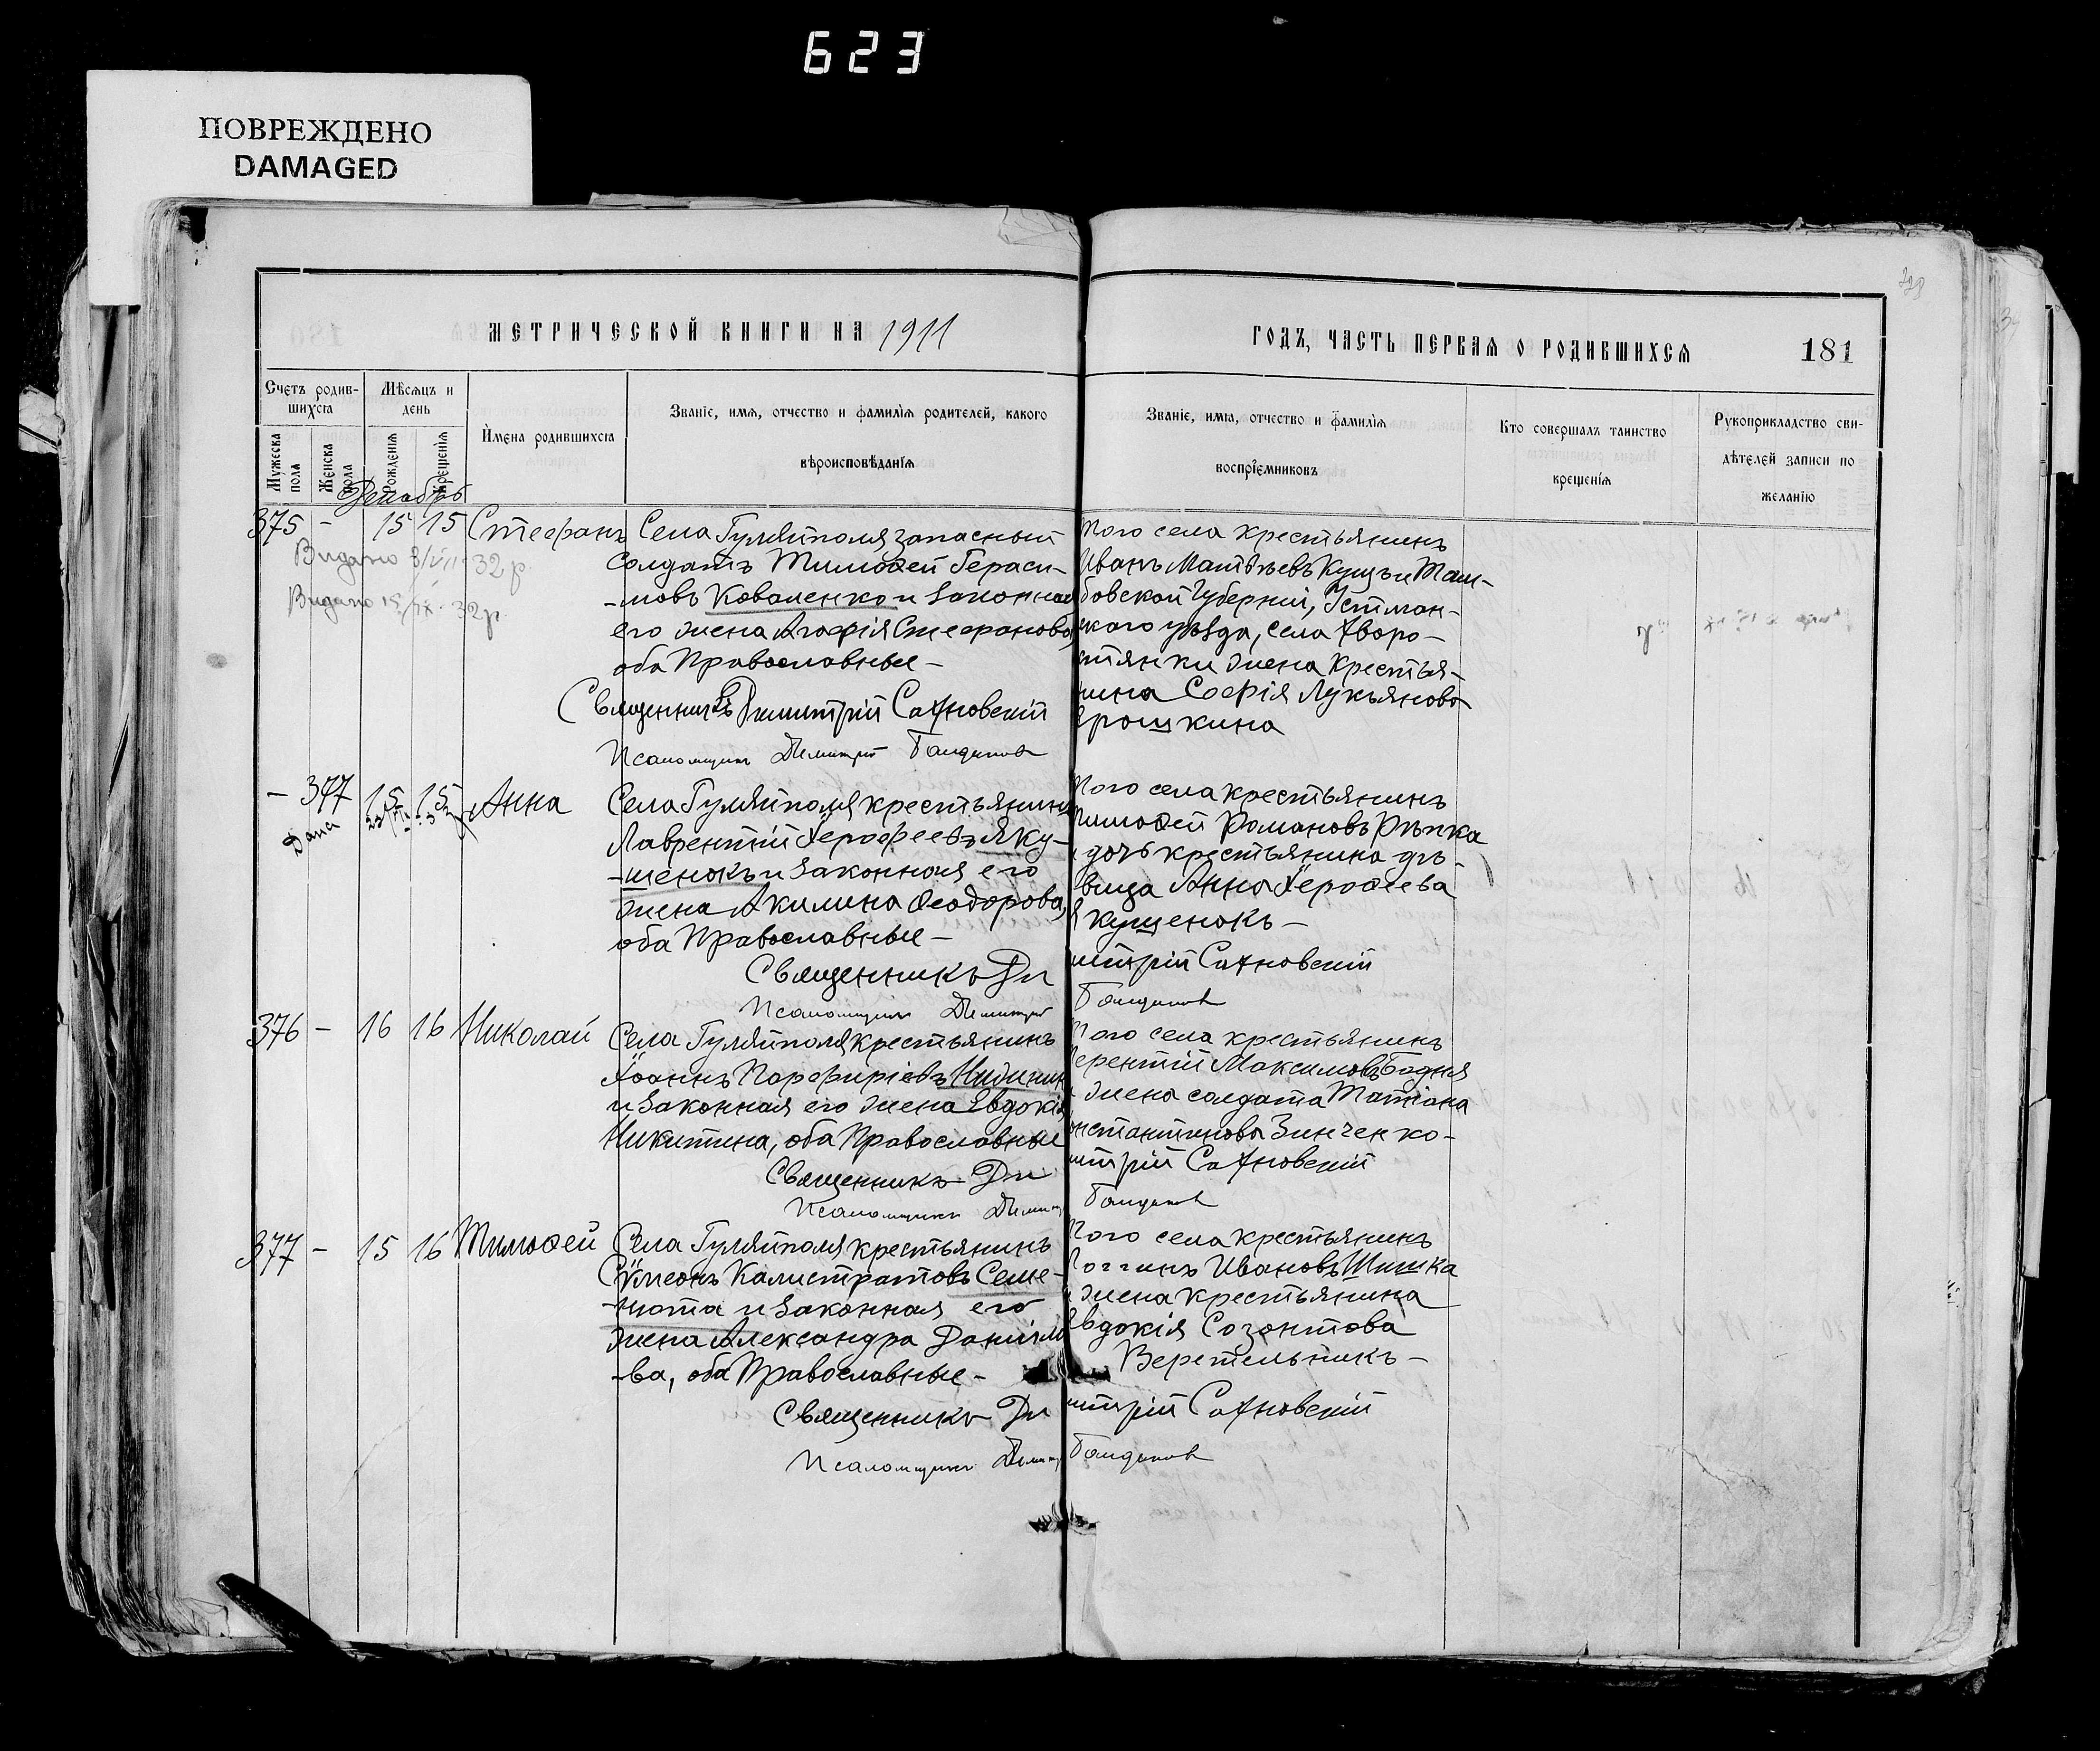 623
ПОВРЕЖДЕНО
DAMAGED
МЕТРИЧЕСКОЙ КНИГИ НА 1911
ГОДЪ, ЧАСТЬ ПЕРВАЯ О РОДИВШИХСЯ
181
Счетъ родив-
шихся
Мужеска
пола
Женска
пола
Мѣсяцъ и
день
Рожденія
Крещенія
Имена родившихся
Званіе, имя, отчество и фамилія родителей, какого
вѣроисповѣданія
Званіе, имя, отчество и фамилія
воспріемниковъ
Кто совершалъ таинство
крещенія
Рукоприкладство сви-
дѣтелей записи по
желанію
Декабрь
375 - 15 15 Стефанъ
Видано 32 р.
Видано 32 р.
Села Гуляйполя запасный
солдатъ Тимоѳей Гераси-
-мовъ Коваленко и законная
его жена Агафія Стефанова,
оба Православные -
Того села крестьянинъ
Иванъ Матѳѣевъ Кущъ и Там-
бовской Губерніи,
уѣзда, села Дворо-
стянки жена крестья-
нина Софія Лукьянова
Ерошкина
Священникъ Димитрій Сахновскій
Псаломщикъ Димитрій
- 377 15 15 Анна
Дана
Села Гуляйполя крестьянинъ
Лаврентій Іерофеевъ Яку-
-шенокъ и законная его
жена Акилина Ѳеодорова,
оба Православные -
Того села крестьянинъ
Тимоѳей Романовъ Рѣпка
и дочь крестьянина дѣ-
вица Анна Іероѳеева
Якушенокъ -
Священникъ Димитрій Сахновскій
Псаломщикъ Димитрій
376 - 16 16 Николай
Села Гуляйполя крестьянинъ
Іоаннъ Порфиріевъ
и законная его жена Евдокія
Никитина, оба Православные
Того села крестьянинъ
Терентій Максимовъ Бодня
и жена солдата Татіана
Константинова Зинченко -
Священникъ Димитрій Сахновскій
Псаломщикъ Димитрій
377 - 15 16 Тимоѳей
Села Гуляйполя крестьянинъ
Сѵмеонъ Калистратовъ Семе-
-нюта и законная его
жена Александра Даніило-
-ва, оба Православные -
Того села крестьянинъ
Логгинъ Ивановъ Шишка
и жена крестьянина
Евдокія Созонтова
Веретельникъ -
Священникъ Димитрій Сахновскій
Псаломщикъ Димитрій